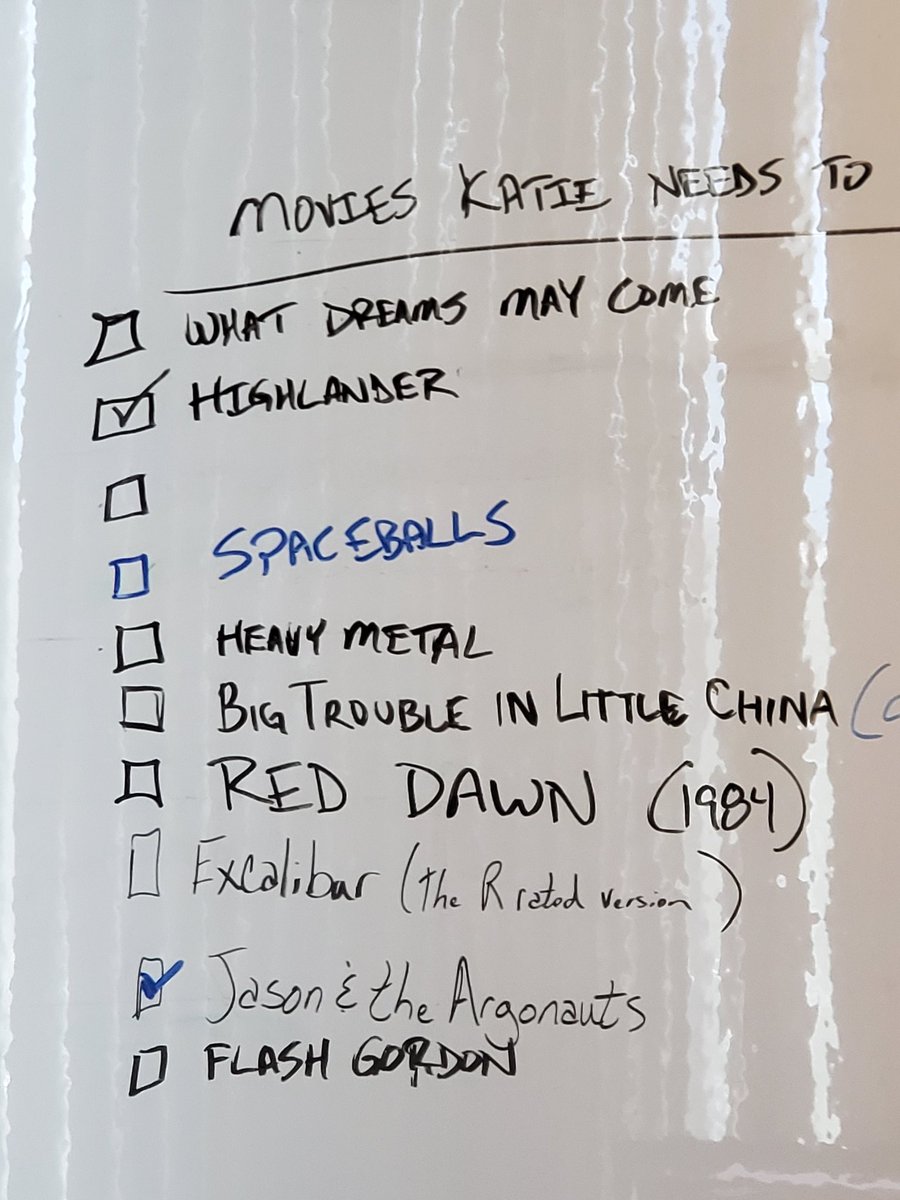 MOVIES KATIE NEEDS TO
WHAT DREAMS MAY COME
HIGHLANDER
SPACEBALLS
HEAVY METAL
BIG TROUBLE IN LITTLE CHINA (
RED DAWN (1984)
Excalibar (the R rated version)
Jason & the Argonauts
FLASH GORDON